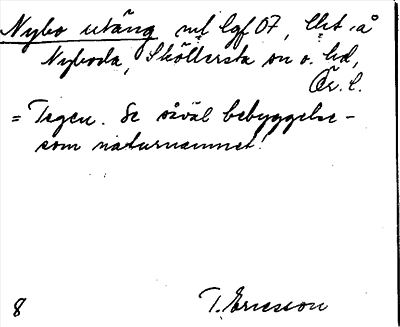 Nybo utäng ml lgf 07, lht å
Nyboda, Sköllersta sn o. hd,
Ör. l.
= Tegen. Se såväl bebyggelse-
som naturnamnet!
8 T. Ericsson